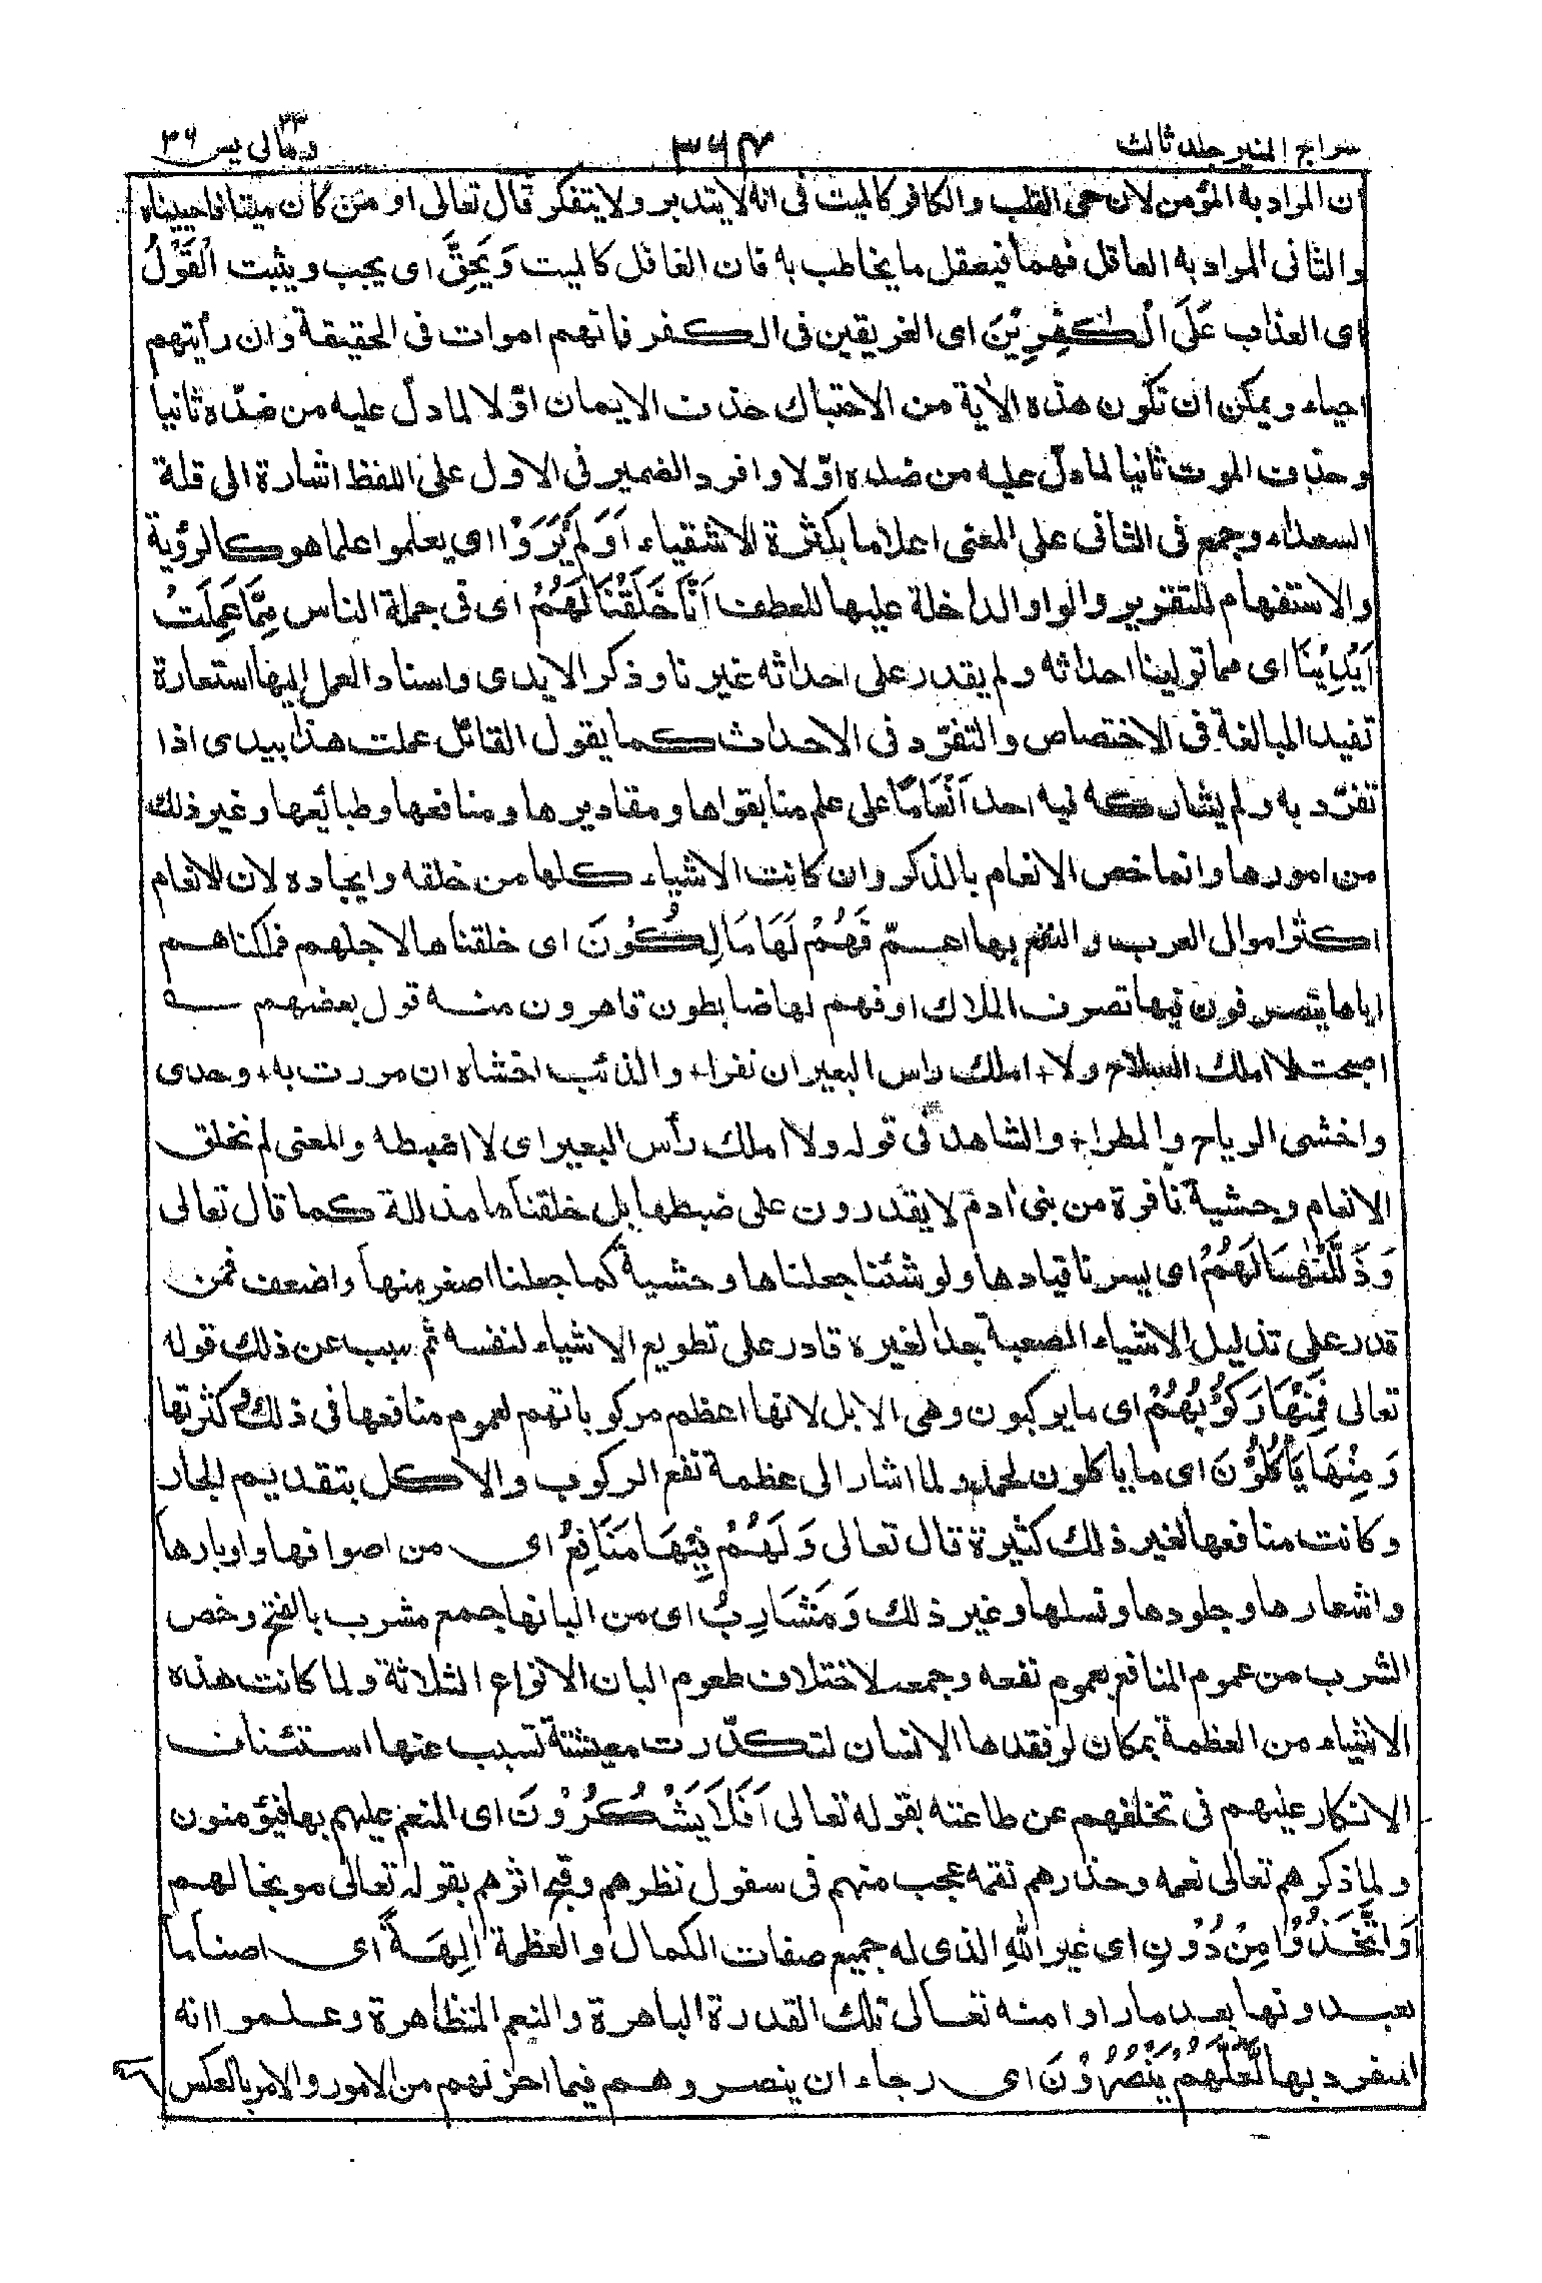 سراج المنير جلد ثالث ٣٦٧ ومالى ٢٣ يس ٣٦
ان المراد به المؤمن لان حى القلب والكافر كالميت فى انه لا يتدبر ولا يتفكر قال تعالى او من كان ميتا فاحييناه
والثانى المراد به العاقل فهما فيعقل ما يخاطب به فان الغافل كالميت وَيَحِقَّ اى يجب ويثبت الْقَوْلُ
اى العذاب عَلَى الْكٰفِرِيْنَ اى الغريقين فى الكفر فانهم اموات فى الحقيقة وان رأيتهم
احياء ويمكن ان تكون هذه الاٰية من الاحتباك حذف الايمان اوّلا لما دلّ عليه من ضدّه ثانيا
وحذف الموت ثانيا لما دلّ عليه من ضده اوّلا وافرد الضمير فى الاول على اللفظ اشارة الى قلة
السعداء وجمع فى الثانى على المعنى اعلاما بكثرة الاشقياء اَوَلَمْ يَرَوْا اى يعلموا علما هو كالرؤية
والاستفهام للتقرير والواو الداخلة عليها للعطف اَنَّا خَلَقْنَا لَهُمْ اى فى جملة الناس مِمَّا عَمِلَتْ
اَيْدِيْنَا اى مما تولينا احداثه ولم يقدر على احداثه غيرنا وذكر الايدى واسناد العمل اليها استعارة
تفيد المبالغة فى الاختصاص والتفرّد فى الاحداث كما يقول القائل عملت هذا بيدى اذا
تفرّد به ولم يشاركه فيه احد اَنْعَامًا على علم منا بقواها ومقاديرها ومنافعها وطبائعها وغير ذلك
من امورها وانما خص الانعام بالذكر وان كانت الاشياء كلها من خلقه وايجاده لان الانعام
اكثر اموال العرب والنفع بها اعمّ فَهُمْ لَهَا مَالِكُوْنَ اى خلقناها لاجلهم فملكناهم
اياها يتصرفون فيها تصرف الملاك او فهم لها ضابطون قاهرون منه قول بعضهم
اصبحت لا املك السلاح ولا + املك راس البعير ان نفرا + والذئب اخشاه ان مررت به + وحدى
واخشى الرياح والمطرا + والشاهد فى قوله ولا املك رأس البعير اى لا اضبطه والمعنى لم نخلق
الانعام وحشية نافرة من بنى اٰدم لا يقدرون على ضبطها بل خلقناها مذللة كما قال تعالى
وَذَلَّلْنٰهَا لَهُمْ اى يسرنا قيادها ولو شئنا جعلناها وحشية كما جعلنا اصغر منها واضعف فمن
قدر على تذليل الاشياء الصعبة جدا لغيره قادر على تطويع الاشياء لنفسه ثم سبب عن ذلك قوله
تعالى فَمِنْهَا رَكُوْبُهُمْ اى ما يركبون وهى الابل لانها اعظم مركوباتهم لعموم منافعها فى ذلك وكثرتها
وَمِنْهَا يَأْكُلُوْنَ اى ما يأكلون لحمه ولما اشار الى عظمة نفع الركوب والاكل بتقديم الجار
وكانت منافعها لغير ذلك كثيرة قال تعالى وَلَهُمْ فِيْهَا مَنَافِعُ اى من اصوافها واوبارها
واشعارها وجلودها ونسلها وغير ذلك وَمَشَارِبُ اى من البانها جمع مشرب بالفتح وخص
الشرب من عموم المنافع بعموم نفعه وجمعه لاختلاف طعوم البان الانواع الثلاثة ولما كانت هذه
الاشياء من العظمة بمكان لو فقدها الانسان لتكدّرت معيشته تسبب عنها استئناف
الانكار عليهم فى تخلفهم عن طاعته بقوله تعالى اَفَلَا يَشْكُرُوْنَ اى المنعم عليهم بها فيؤمنون
ولما ذكرهم تعالى نعمه وحذرهم نقمه عجب منهم فى سفول نظرهم وقبح اثرهم بقوله تعالى موبخا لهم
وَاتَّخَذُوْا مِنْ دُوْنِ اى غير اللهِ الذى له جميع صفات الكمال والعظمة اٰلِهَةً اى اصناما
يعبدونها بعد ما راوا منه تعالى تلك القدرة الباهرة والنعم المتظاهرة وعلموا انه
المنفرد بها لَّعَلَّهُمْ يُنْصَرُوْنَ اى رجاء ان ينصروهم فيما احزنهم من الامور والامر بالعكس